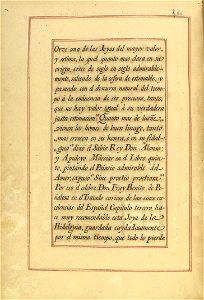 Orve una de las Joyas del mayor valor,
y estima, la qual quanto mas dura en su
origen, crece de siglo en siglo admirable-
mente, saliendo de la esfera de estimable, y
pasando con el discurso natural del tiem-
po à la eminencia de ser preciosa, tanto,
que no hay valor igual à su verdadera
justa estimacion. Quanto mas de lueñe
vienen los homes de buen linage, tanto
mas crecen en su honra, è en su fidal-
guia" dixo el Sabio Rey Don Alonso.
Y Apuleyo Milesias en el Libro quin-
to, pintando el Palacio admirable del
Amor, expuso: Sine pretio pretiosae.
Por eso el celebre Don Fray Benito de Pe-
ñalosa en el Tratado curioso de las cinco ex-
celencias del Español Capitulo tercero ha-
ce muy recomendable esta Joya de la
Hidalguia, guardada cuydadosamente
por el mismo tiempo, que todo lo pierde